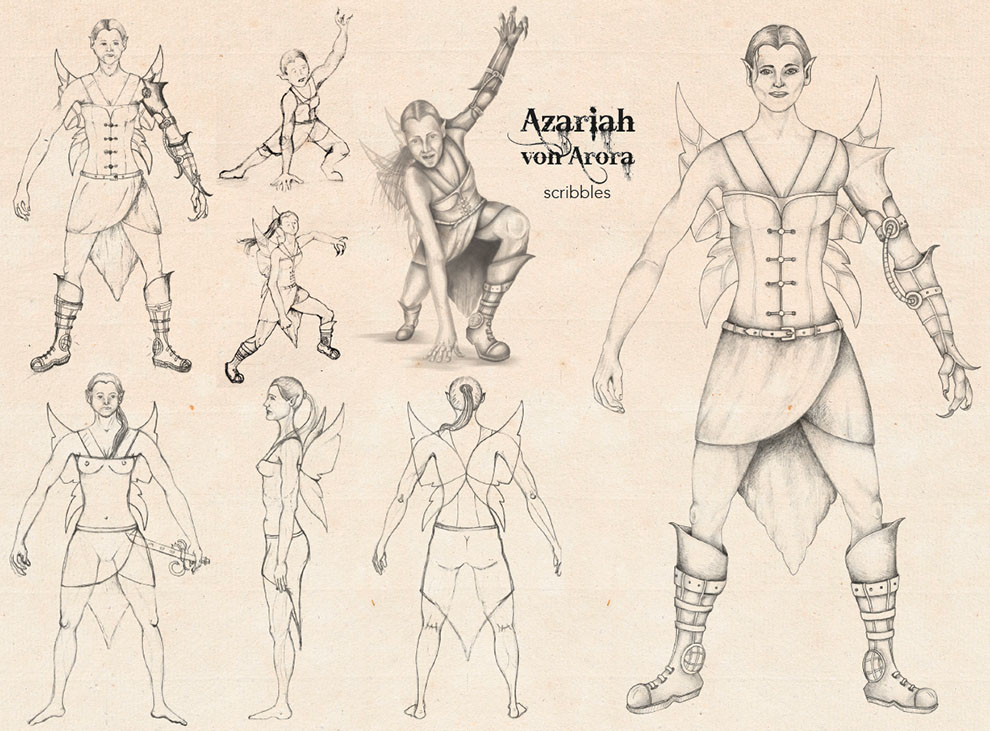 Azariah
von Arora
scribbles